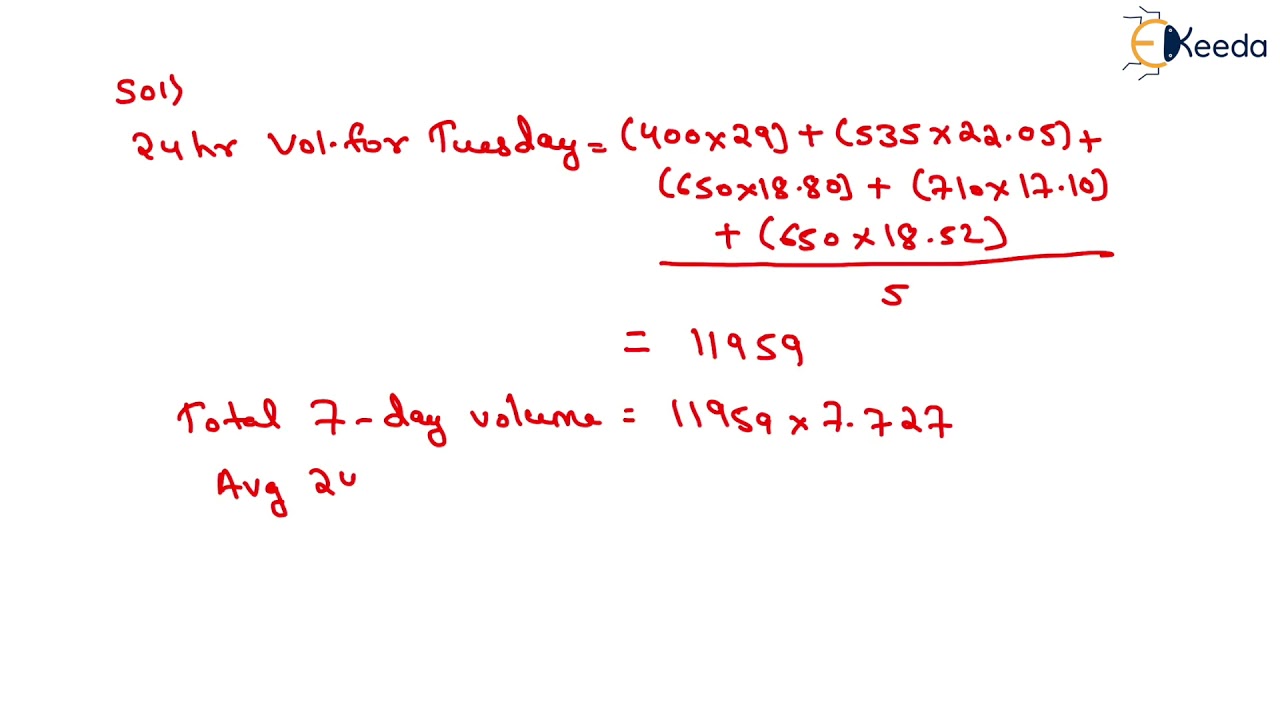 EKeeda
Sol)
24hr Vol.for Tuesday = (400x29) + (535x22.05) +
(650x18.80) + (710x17.10)
+ (650x18.52)
5
= 11959
Total 7-day volume = 11959 x 7.727
Avg 24